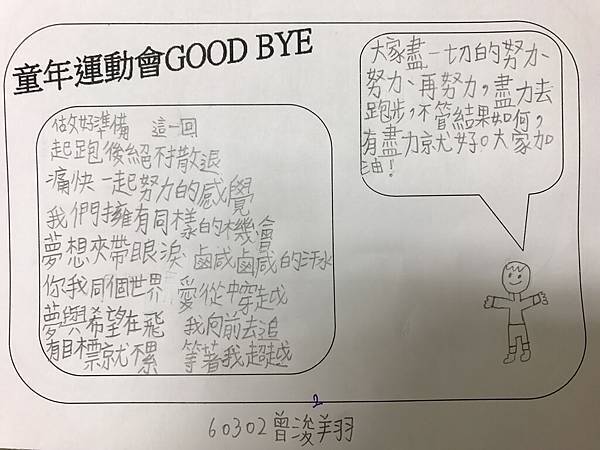 童年運動會GOOD BYE
做好準備 這一回
起跑後絕不打散退
痛快一起努力的感覺
我們擁有同樣的機會
夢想夾帶眼淚 鹹鹹的汗水
你我同個世界 愛從中穿越
夢與希望在飛 我向前去追
有目標就不累 等著我超越
大家盡一切的努力、
努力、再努力,盡力去
跑步,不管結果如何,
有盡力就好。大家加
油!
2
60302曾浚翔